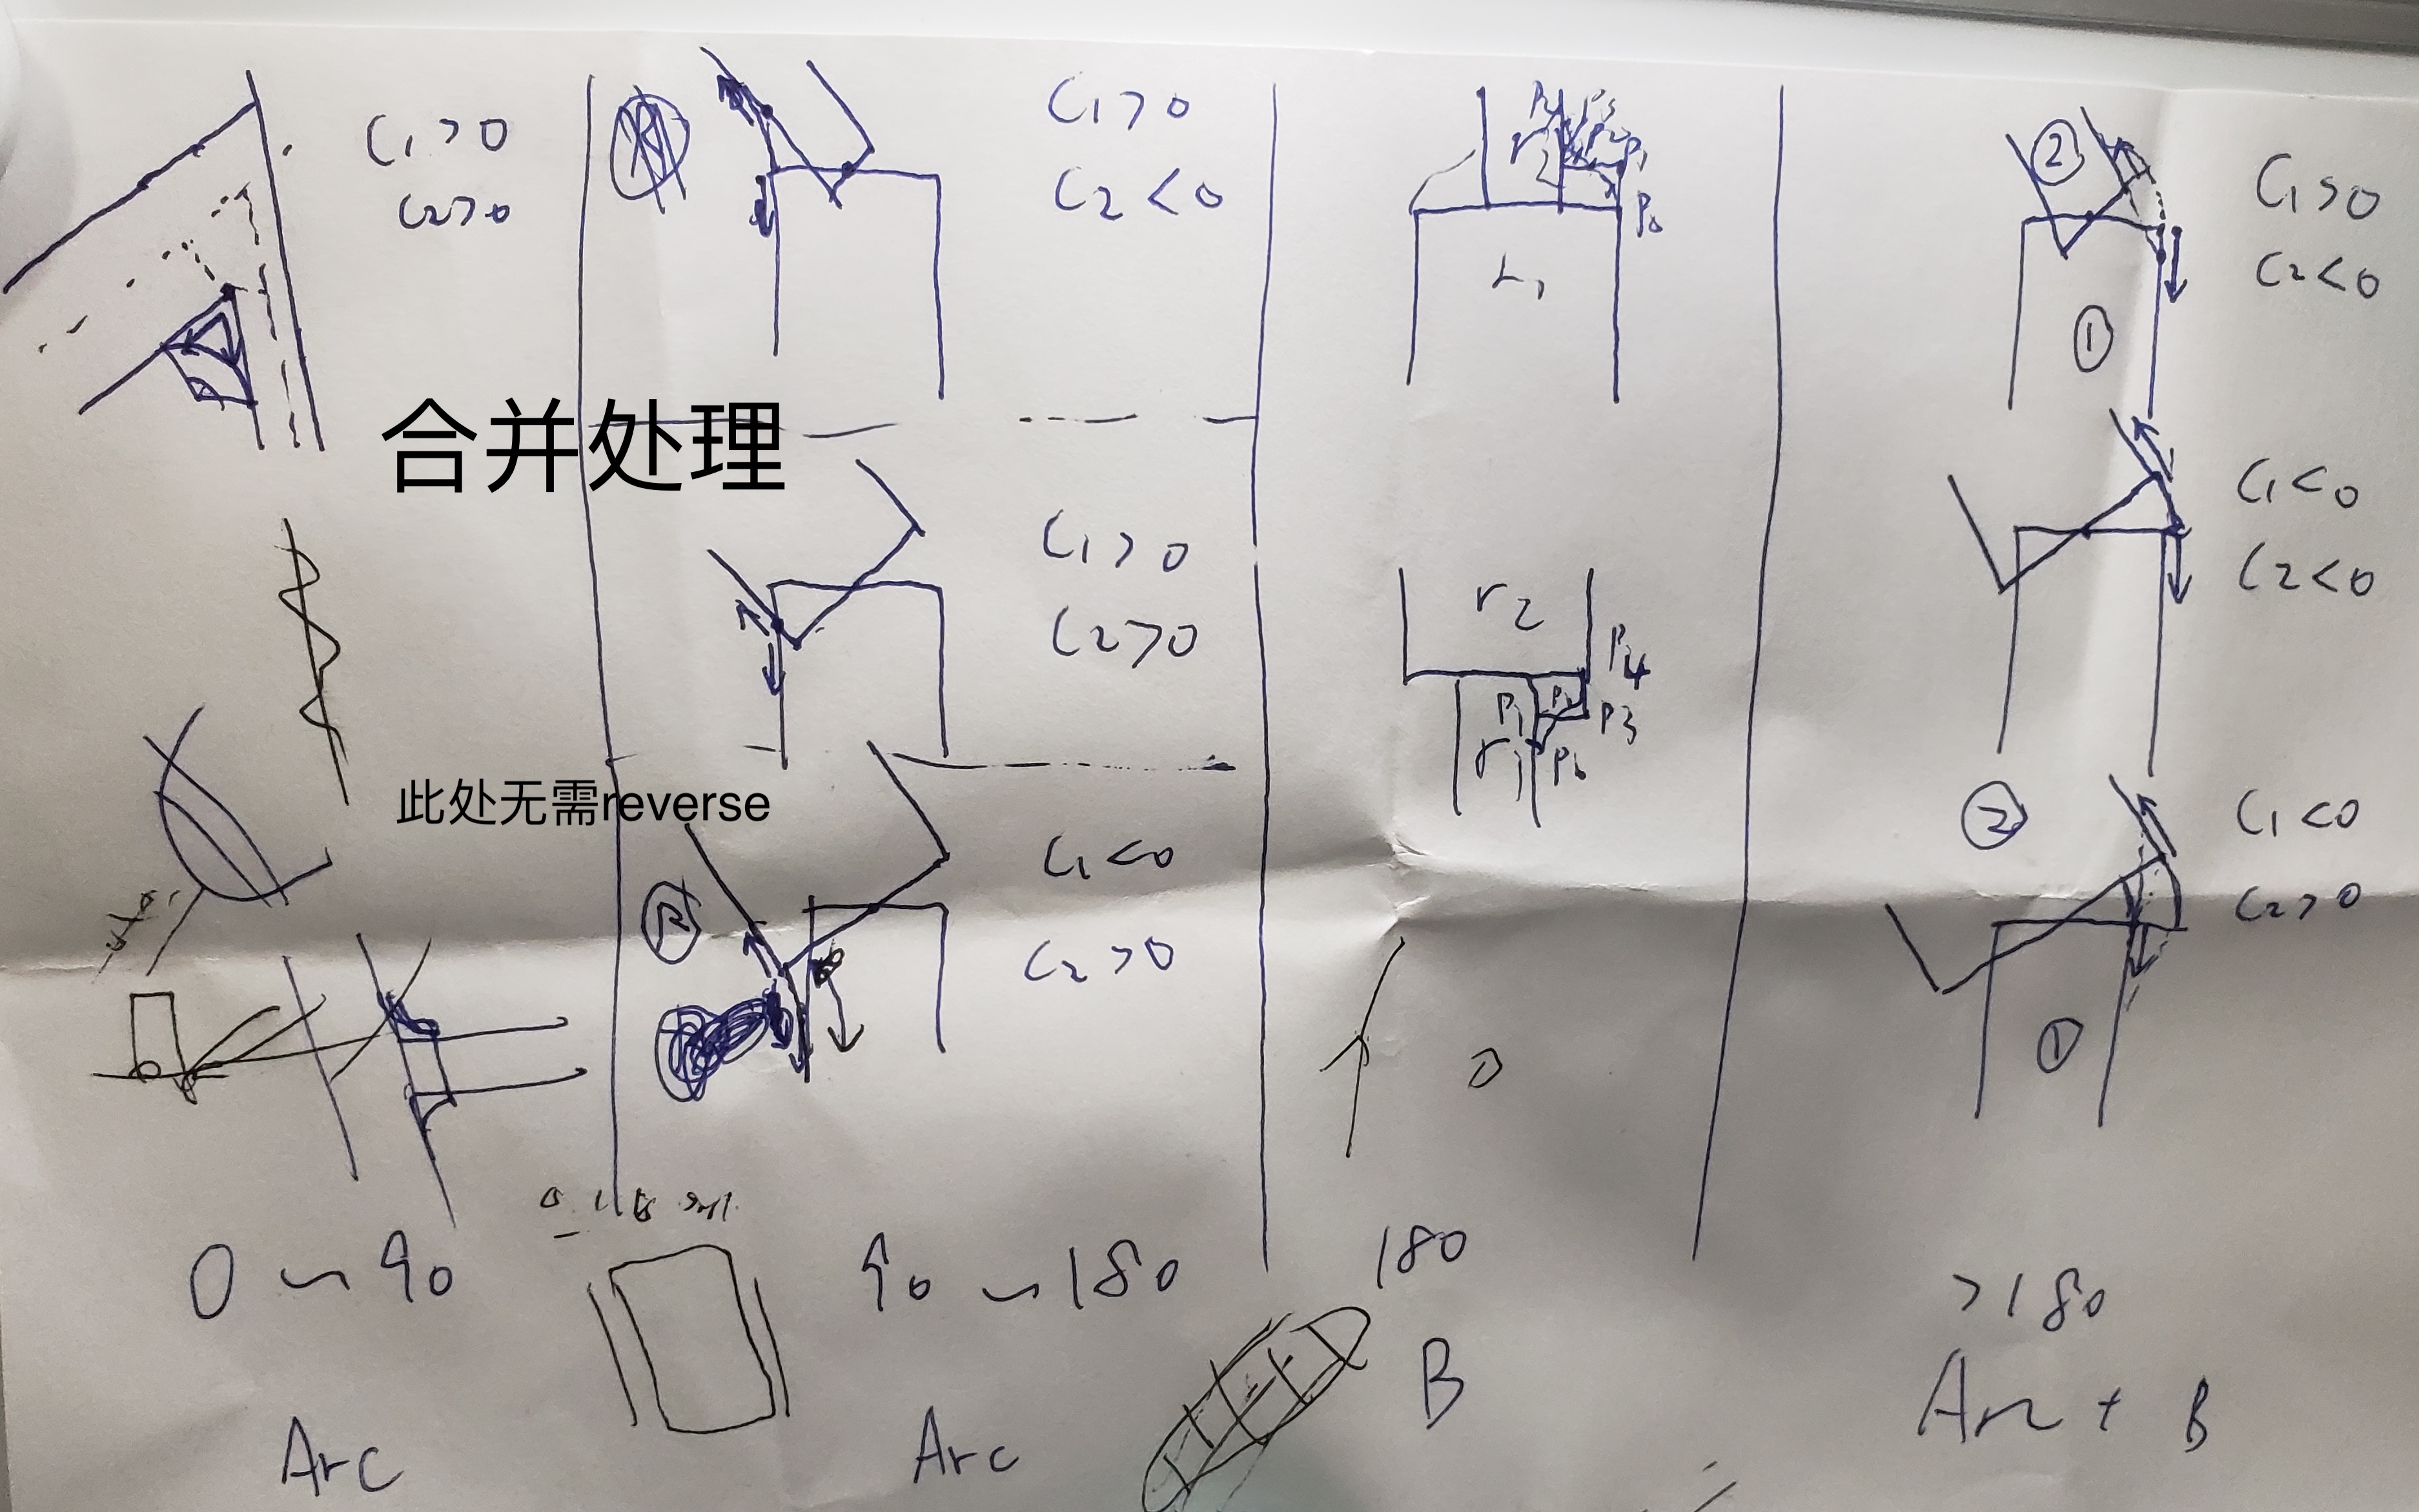 C₁>0
C₂>0
合并处理
此处无需reverse
0~90
Arc
C₁>0
C₂<0
C₁>0
C₂>0
C₁<0
C₂>0
90~180
Arc
P₁
P₀
r₂
P₄
P₁
P₃
r₁
P₀
180
B
②
C₁>0
C₂<0
①
C₁<0
C₂<0
②
C₁<0
C₂>0
①
>180
Arc + B